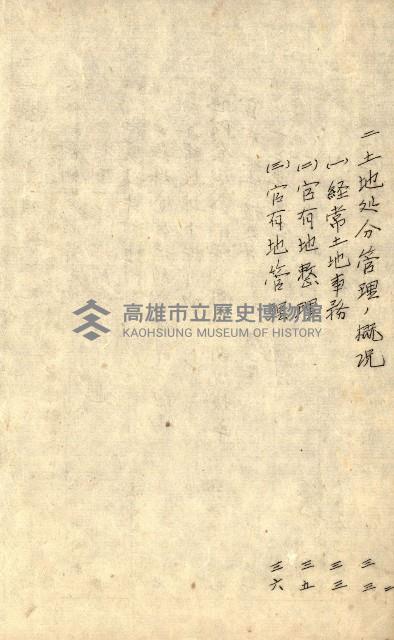 二 土地処分管理ノ概況 三三
(一) 経常土地事務 三三
(二) 官有地整理 三五
(三) 官有地管理 三六
高雄市立歷史博物館
KAOHSIUNG MUSEUM OF HISTORY